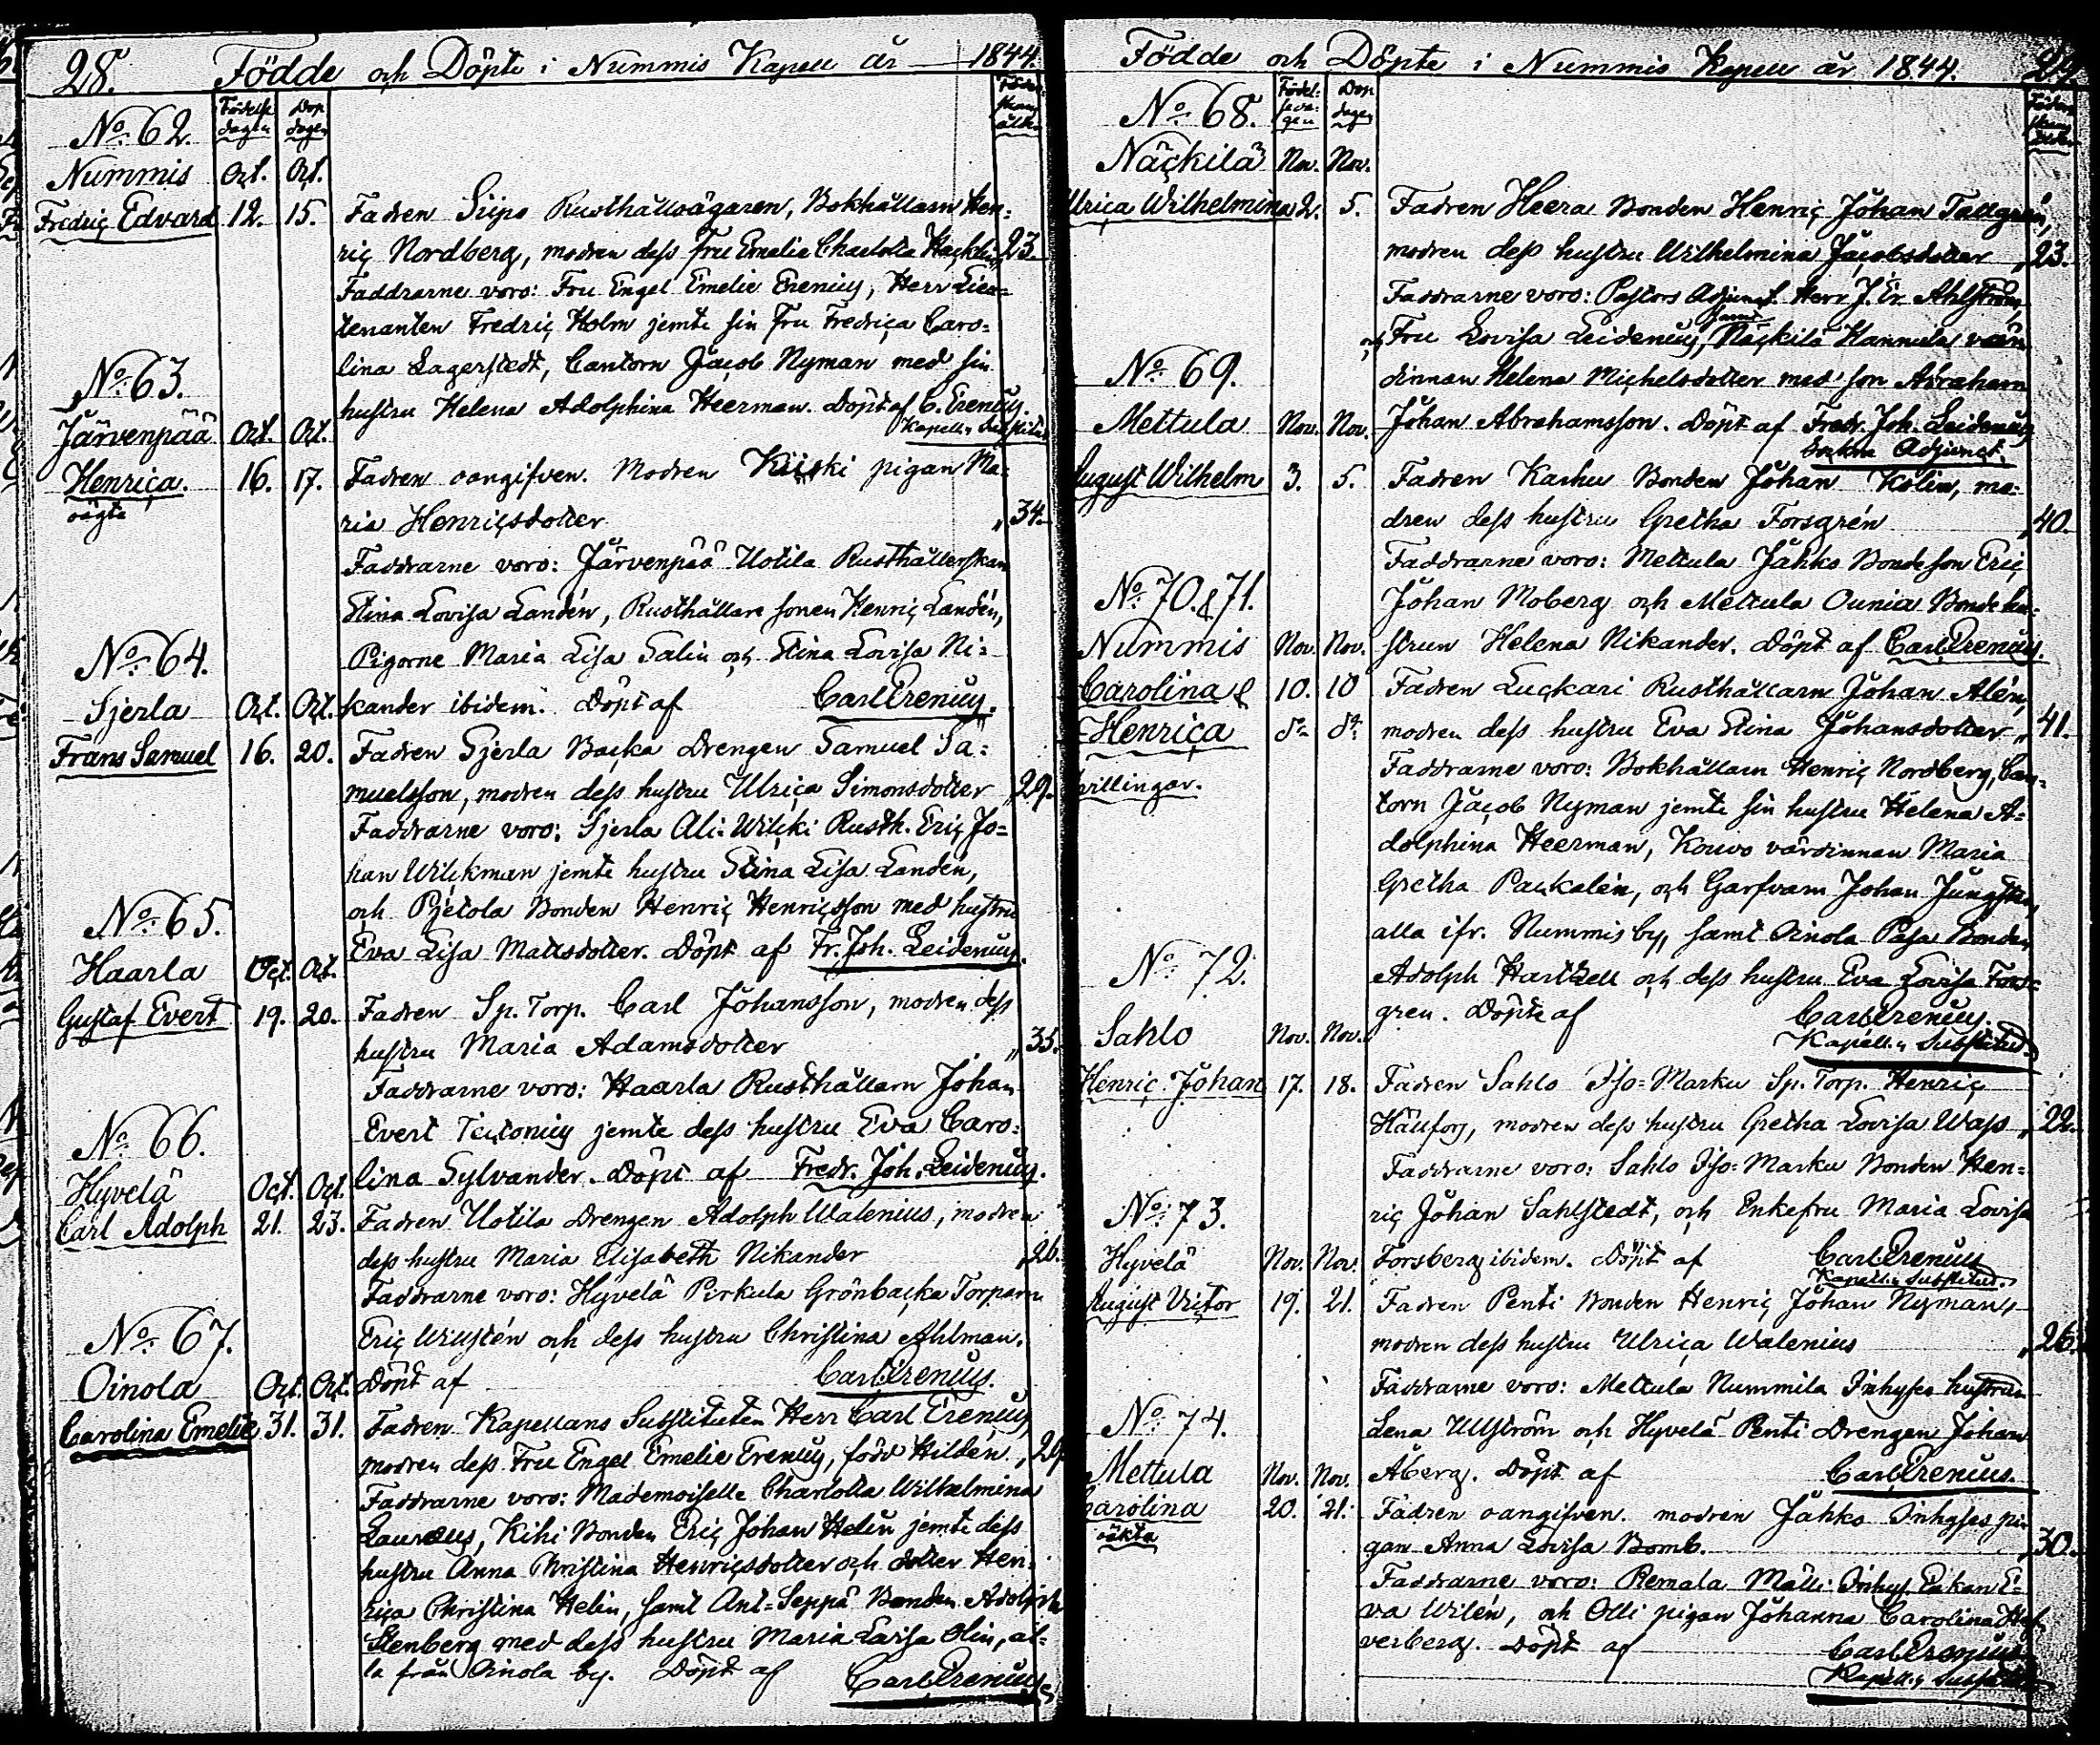 28. Födde och Döpte i Nummis Kapell år 1844.
No. 62. Födelse dagen Dop dagen
Nummis Oct. Oct.
Fredric Edvard 12. 15. Fadren Siipo Rusthållsägaren, Bokhållarn Hen=
ric Nordberg, modren dess Fru Emelie Charlotta Hacklin „23.
Faddrarne voro: Fru Engel Emelie Erenius, Herr Lieu=
tenanten Fredric Holm jemte sin Fru Fredrica Caro=
lina Lagerstedt, Cantorn Jacob Nyman med sin
hustru Helena Adolphina Heerman. Döpt af C. Erenius.
No. 63.
Järvenpää Oct. Oct.
Henrica. 16. 17. Fadren oangifven. Modren Kiiski pigan Ma=
oägta
ria Henricsdotter „34.
Faddrarne voro: Järvenpää Uotila Rusthållerskan
Stina Lovisa Landén, Rusthållare sonen Henric Landén,
Pigorne Maria Lisa Salin och Stina Lovisa Ni=
kander ibidem. Döpt af Carl Erenius.
No. 64.
Sjerla Oct. Oct.
Frans Samuel 16. 20. Fadren Sjerla Backa Drengen Samuel Sa=
muelsson, modren dess hustru Ulrica Simonsdotter „29.
Faddrarne voro: Sjerla Ali-Wilcki Rusth. Eric Jo=
han Wilckman jemte hustru Stina Lisa Landén,
och Pjetola Bonden Henric Henricsson med hustru
Eva Lisa Mattsdotter. Döpt af Fr. Joh. Leidenius.
No. 65.
Haarla Oct. Oct.
Gustaf Evert 19. 20. Fadren Sp. Torp. Carl Johansson, modren dess
hustru Maria Adamsdotter „35.
Faddrarne voro: Haarla Rusthållarn Johan
Evert Tectonius jemte dess hustru Eva Caro=
lina Sylvander. Döpt af Fredr. Joh. Leidenius.
No. 66.
Hyvelä Oct. Oct.
Carl Adolph 21. 23. Fadren Uotila Drengen Adolph Walenius, modren
dess hustru Maria Elisabeth Nikander „26.
Faddrarne voro: Hyvelä Pirkula Grönbacka Torparn
Eric Willstén och dess hustru Christina Ahlman.
Döpt af Carl Erenius.
No. 67.
Oinola Oct. Oct.
Carolina Emelie 31. 31. Fadren Kapellans Substituten Herr Carl Erenius,
modren dess Fru Engel Emelie Erenius, född Hildén.
Faddrarne voro: Mademoiselle Charlotta Wilhelmina
Lauræus, Kihi Bonden Eric Johan Helin jemte dess
hustru Anna Christina Henricsdotter och dotter Hen=
rica Christina Helin, samt Ant=Seppä Bonden Adolph
Stenberg med dess hustru Maria Lovisa Olin, al=
la från Oinola by. Döpt af Carl Erenius
Födde och Döpte i Nummis Kapell år 1844. 29.
No. 68. Födelse dagen Dop dagen
Näckilä Nov. Nov.
Ulrica Wilhelmina 2. 5. Fadren Heera Bonden Henric Johan Tallgrén,
modren dess hustru Wilhelmina Jacobsdotter „23.
Faddrarne voro: Pastors Adjunct. Herr J. Er. Ahlström,
och Fru Lovisa Leidenius, samt Näckilä Hannula värn
dinnan Helena Michelsdotter med son Abraham
Johan Abrahamsson. Döpt af Fredr. Joh. Leidenius
Adjunct.
No. 69.
Mettula Nov. Nov.
August Wilhelm 3. 5. Fadren Karhu Bonden Johan Kolin, mo=
dren dess hustru Gretha Forsgrén „40.
Faddrarne voro: Mettula Jähks Bondeson Eric
Johan Moberg och Mettula Ounia Bonde hu=
strun Helena Nikander. Döpt af Carl Erenius.
No. 70. & 71.
Nummis Nov. Nov.
Carolina & 10. 10 Fadren Luckari Rusthållarn Johan Alén,
Henrica do do modren dess hustru Eva Stina Johansdotter „41.
tvillingar.
Faddrarne voro: Bokhållarn Henric Nordberg, Can=
torn Jacob Nyman jemte sin hustru Helena A=
dolphina Heerman, Kouvo värdinnan Maria
Gretha Packalén, och Garfvarn Johan Jungstén,
alla ifr. Nummis by, samt Oinola Pasa Bonden
Adolph Hartzell och dess hustru Eva Lovisa Fors=
gren. Döpte af Carl Erenius.
Kapell. Substitut.
No. 72.
Sahlo Nov. Nov.
Henric Johan 17. 18. Fadren Sahlo Iso=Marku Sp. Torp. Henric
Hänfors, modren dess hustru Gretha Lovisa Wass „22.
Faddrarne voro: Sahlo Iso=Marku Bonden Hen=
ric Johan Sahlstedt, och Enkefru Maria Lovisa
Forsberg ibidem. Döpt af Carl Erenius
Kapell. Substitut.
No. 73.
Hyvelä Nov. Nov.
August Victor 19. 21. Fadren Penti Bonden Henric Johan Nyman,
modren dess hustru Ulrica Walenius „26.
Faddrarne voro: Mettula Nummila Inhyses hustrun
Lena Ullström och Hyvelä Penti Drengen Johan
Åberg. Döpt af Carl Erenius.
No. 74.
Mettula Nov. Nov.
Carolina 20. 21. Fadren oangifven. modren Jähks Inhyses pi=
oäkta
gan Anna Lovisa Bomb. „30.
Faddrarne voro: Remala Matti Inhys. Enkan E=
va Wilén, och Olli pigan Johanna Carolina
verberg. Döpt af Carl Erenius
Kapell. Substitut.